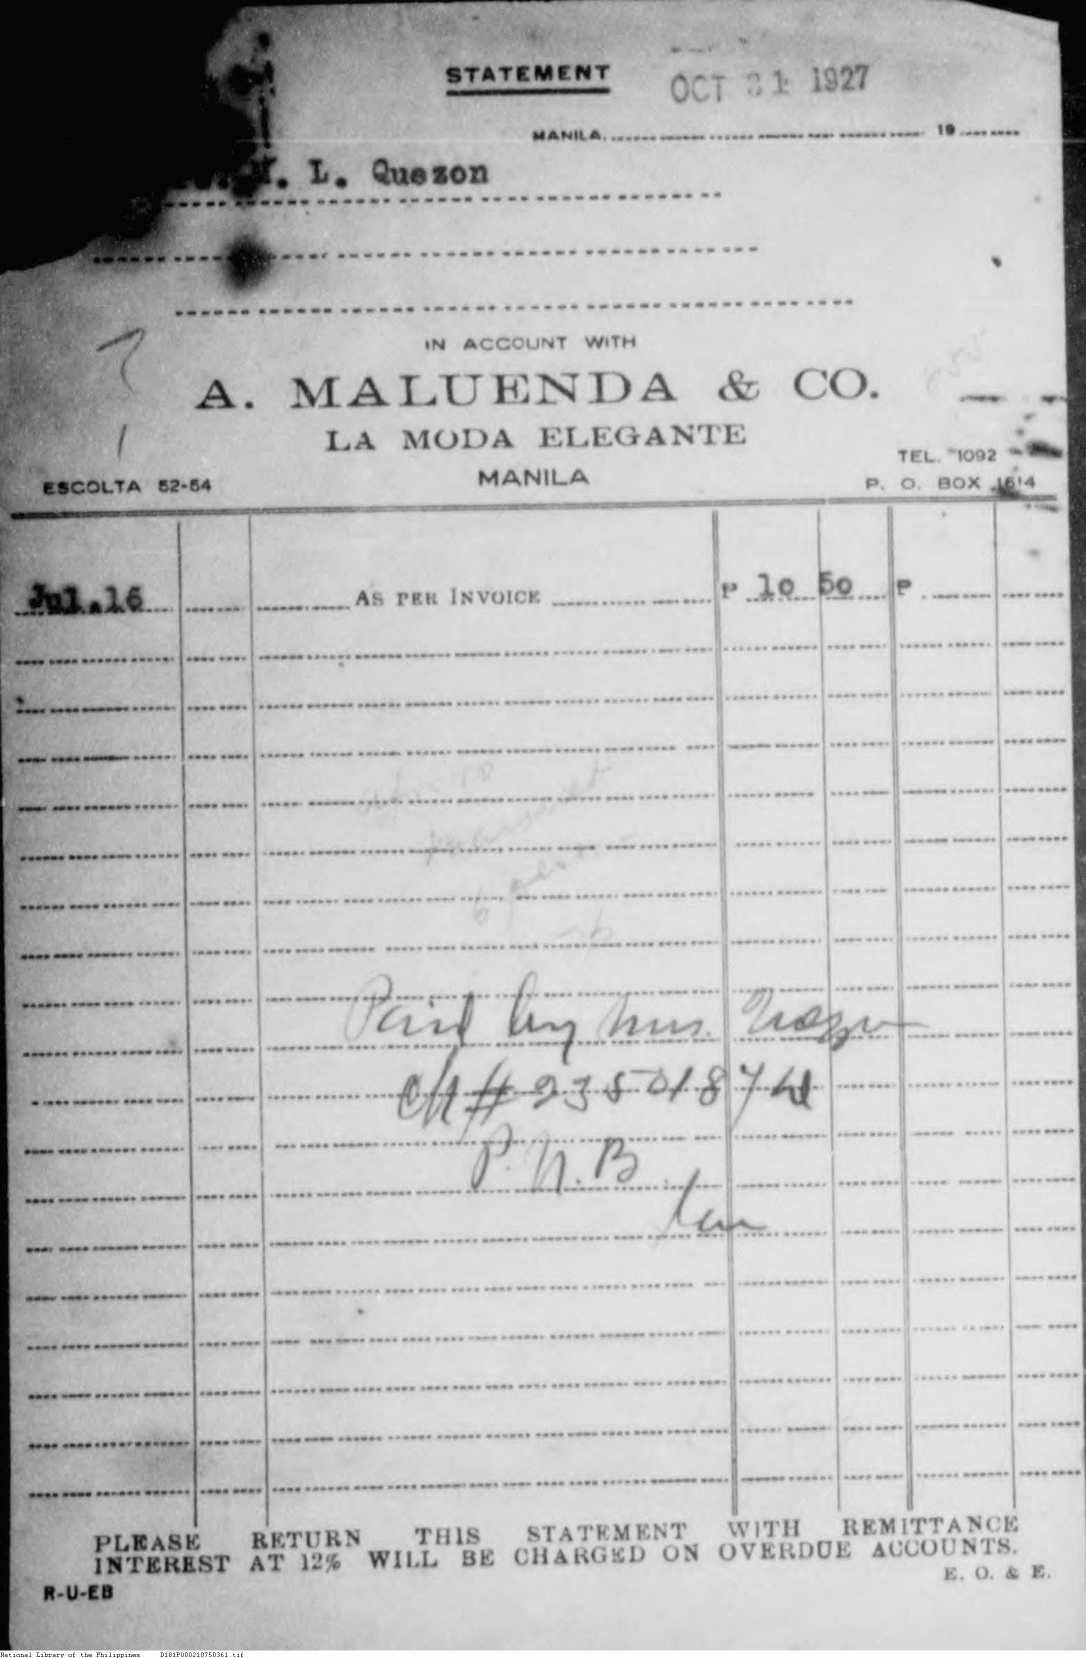 STATEMENT
OCT 31 1927
MANILA, 19
M. L. Quezon
IN ACCOUNT WITH
A. MALUENDA & CO.
LA MODA ELEGANTE
MANILA
TEL. 1092
ESCOLTA 52-54
P. O. BOX 1614
Jul.16 AS PER INVOICE ₱ 10 50 ₱
Paid by Mrs.
Ch # 235018
P.N.B.
PLEASE RETURN THIS STATEMENT WITH REMITTANCE
INTEREST AT 12% WILL BE CHARGED ON OVERDUE ACCOUNTS.
E. O. & E.
R-U-EB
National Library of the Philippines D181P000210750361.tif